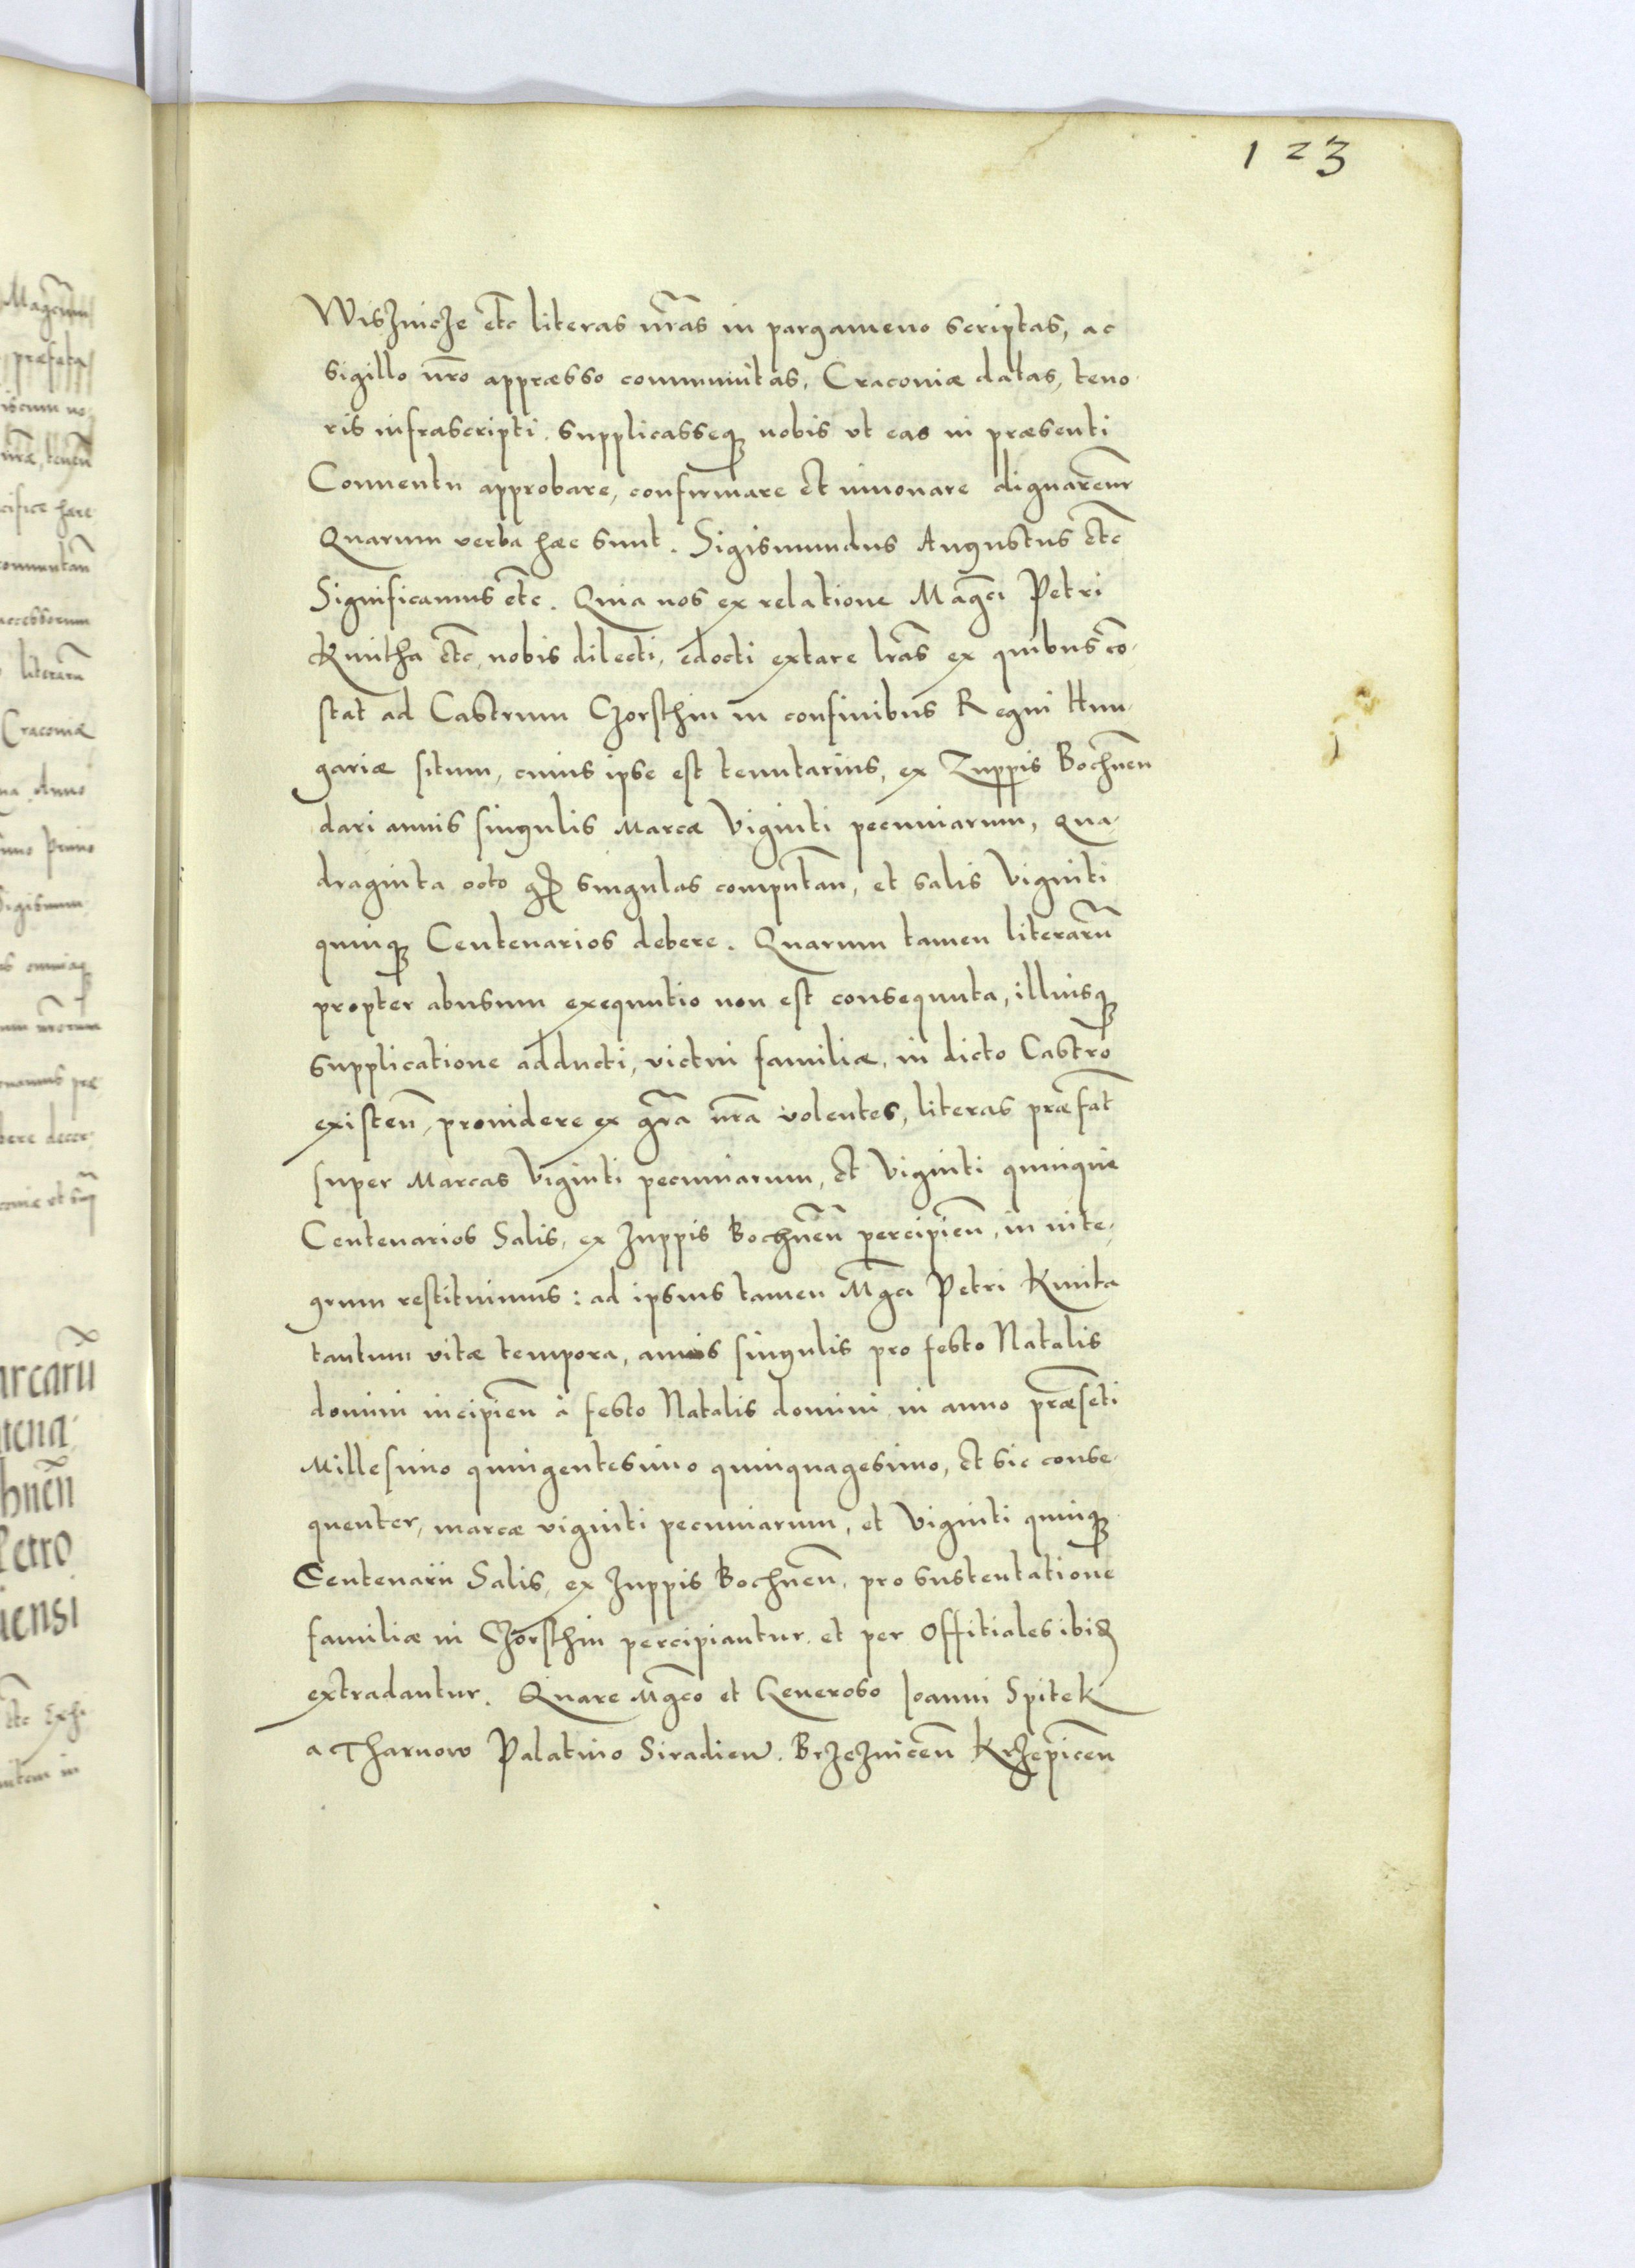 123
Wisznicze etc literas nr̃as in pargameno scriptas, ac
sigillo nr̃o appræsso communitas, Cracoviæ datas, teno-
ris infrascripti. supplicasseq3 nobis ut eas in præsenti
Conventu approbare, confirmare et innovare dignarem̃r
Quarum verba hæc sunt. Sigismundus Augustus etc
Significamus etc. Quia nos ex relatione Mag̃ci Petri
Kmitha etc, nobis dilecti, edocti extare lr̃as ex quibus cõ-
stat ad Castrum Czorsthin in confinibus Regni Hun-
gariæ situm, cuius ipse est tenutarius, ex Zuppis Bochneñ
dari annis singulis Marcæ Viginti pecuniarum, qua-
draginta octo gr̃ singulas computañ, et salis Viginti
quinq3 Centenarios debere. Quarum tamen literarũ
propter abusum exequutio non est consequuta, illiusq3
supplicatione adducti, victui familiæ, in dicto Castro
existeñ, providere ex gr̃a nr̃a volentes, literas præfat̃
super Marcas Viginti pecuniarum, et Viginti quinque
Centenarios Salis, ex zuppis Bochneñ percipieñ, in inte-
grum restituimus: ad ipsius tamen Mg̃ci Petri Kmita
tantum vitæ tempora, annis singulis pro festo Natalis
domini incipieñ à festo Natalis domini in anno præsẽti
Millesimo quingentesimo quinquagesimo, et sic conse-
quenter, marcæ viginti pecuniarum, et Viginti quinq3
Centenarii Salis, ex zuppis Bochneñ, pro sustentatione
familiæ in Czorsthin percipiantur, et per Offitiales ibid̃
extradantur. Quare Mg̃co et Generoso Joanni Spitek
a Tharnow Palatino Siradieñ. Brzezniceñ Krzepiceñ